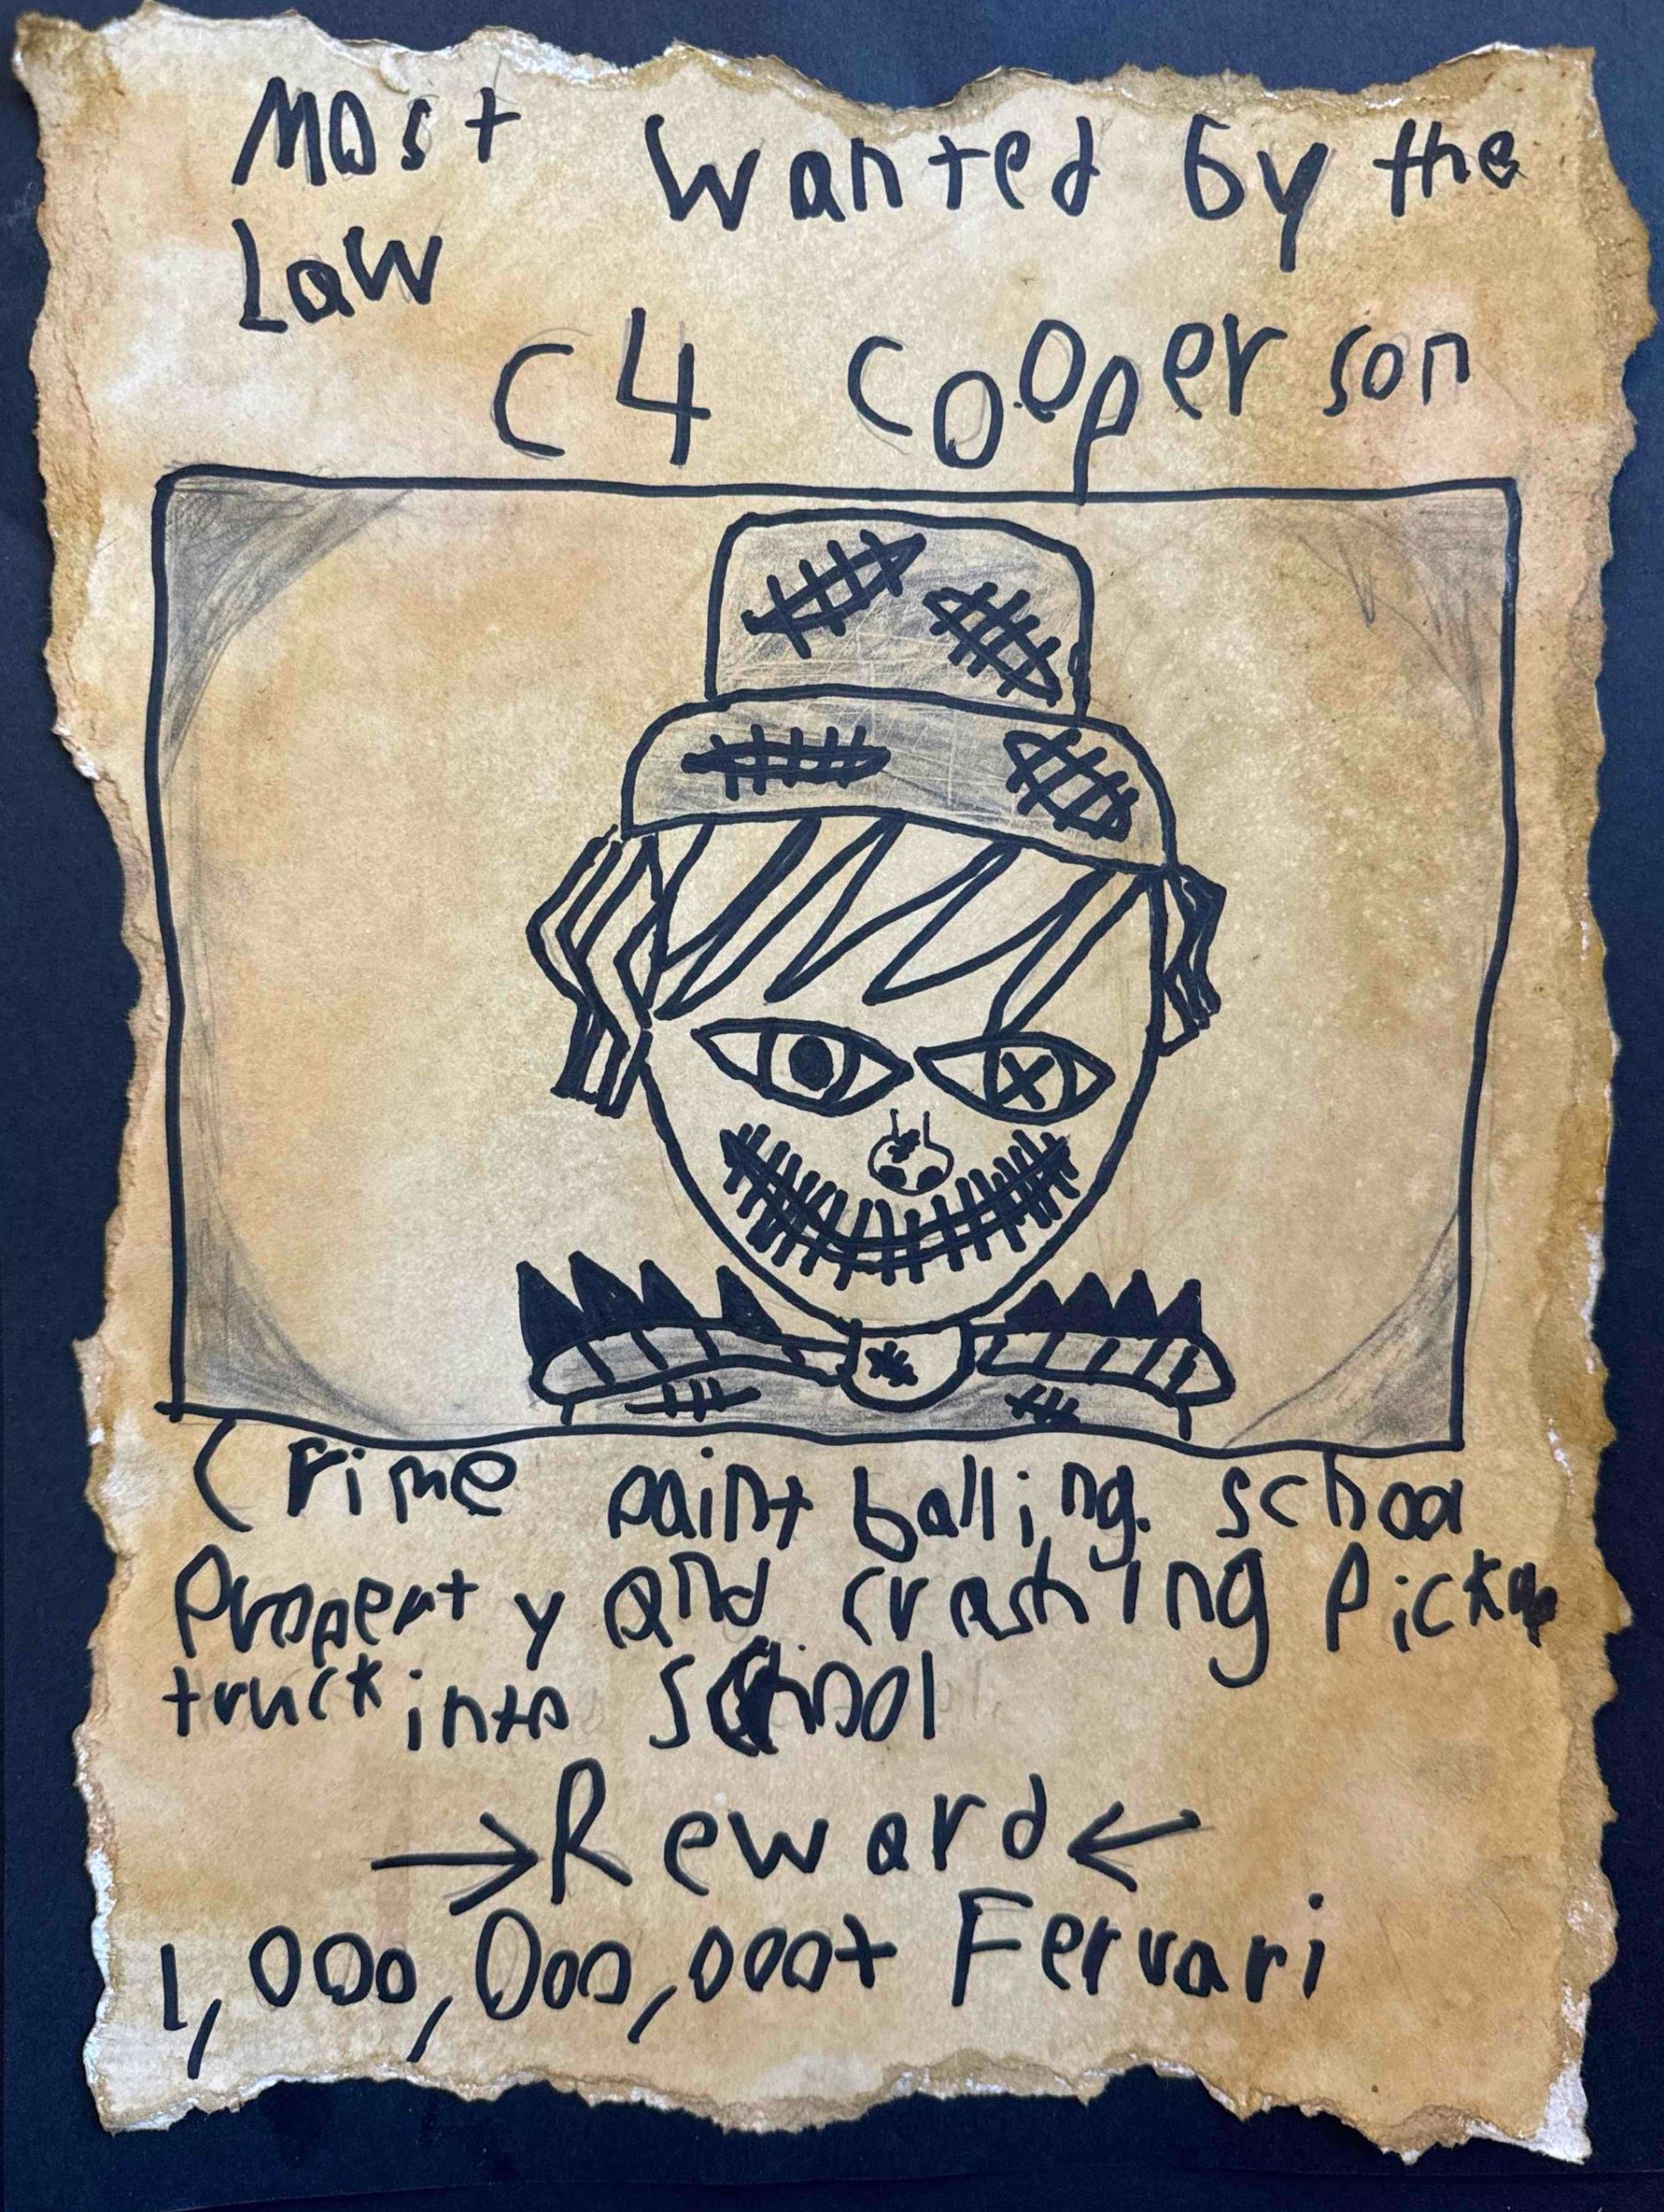 Most wanted by the
Law
C4 cooperson
Crime paint balling school
Property and crashing Pickup
truck into school
→Reward←
1,000,000,000+ Ferrari